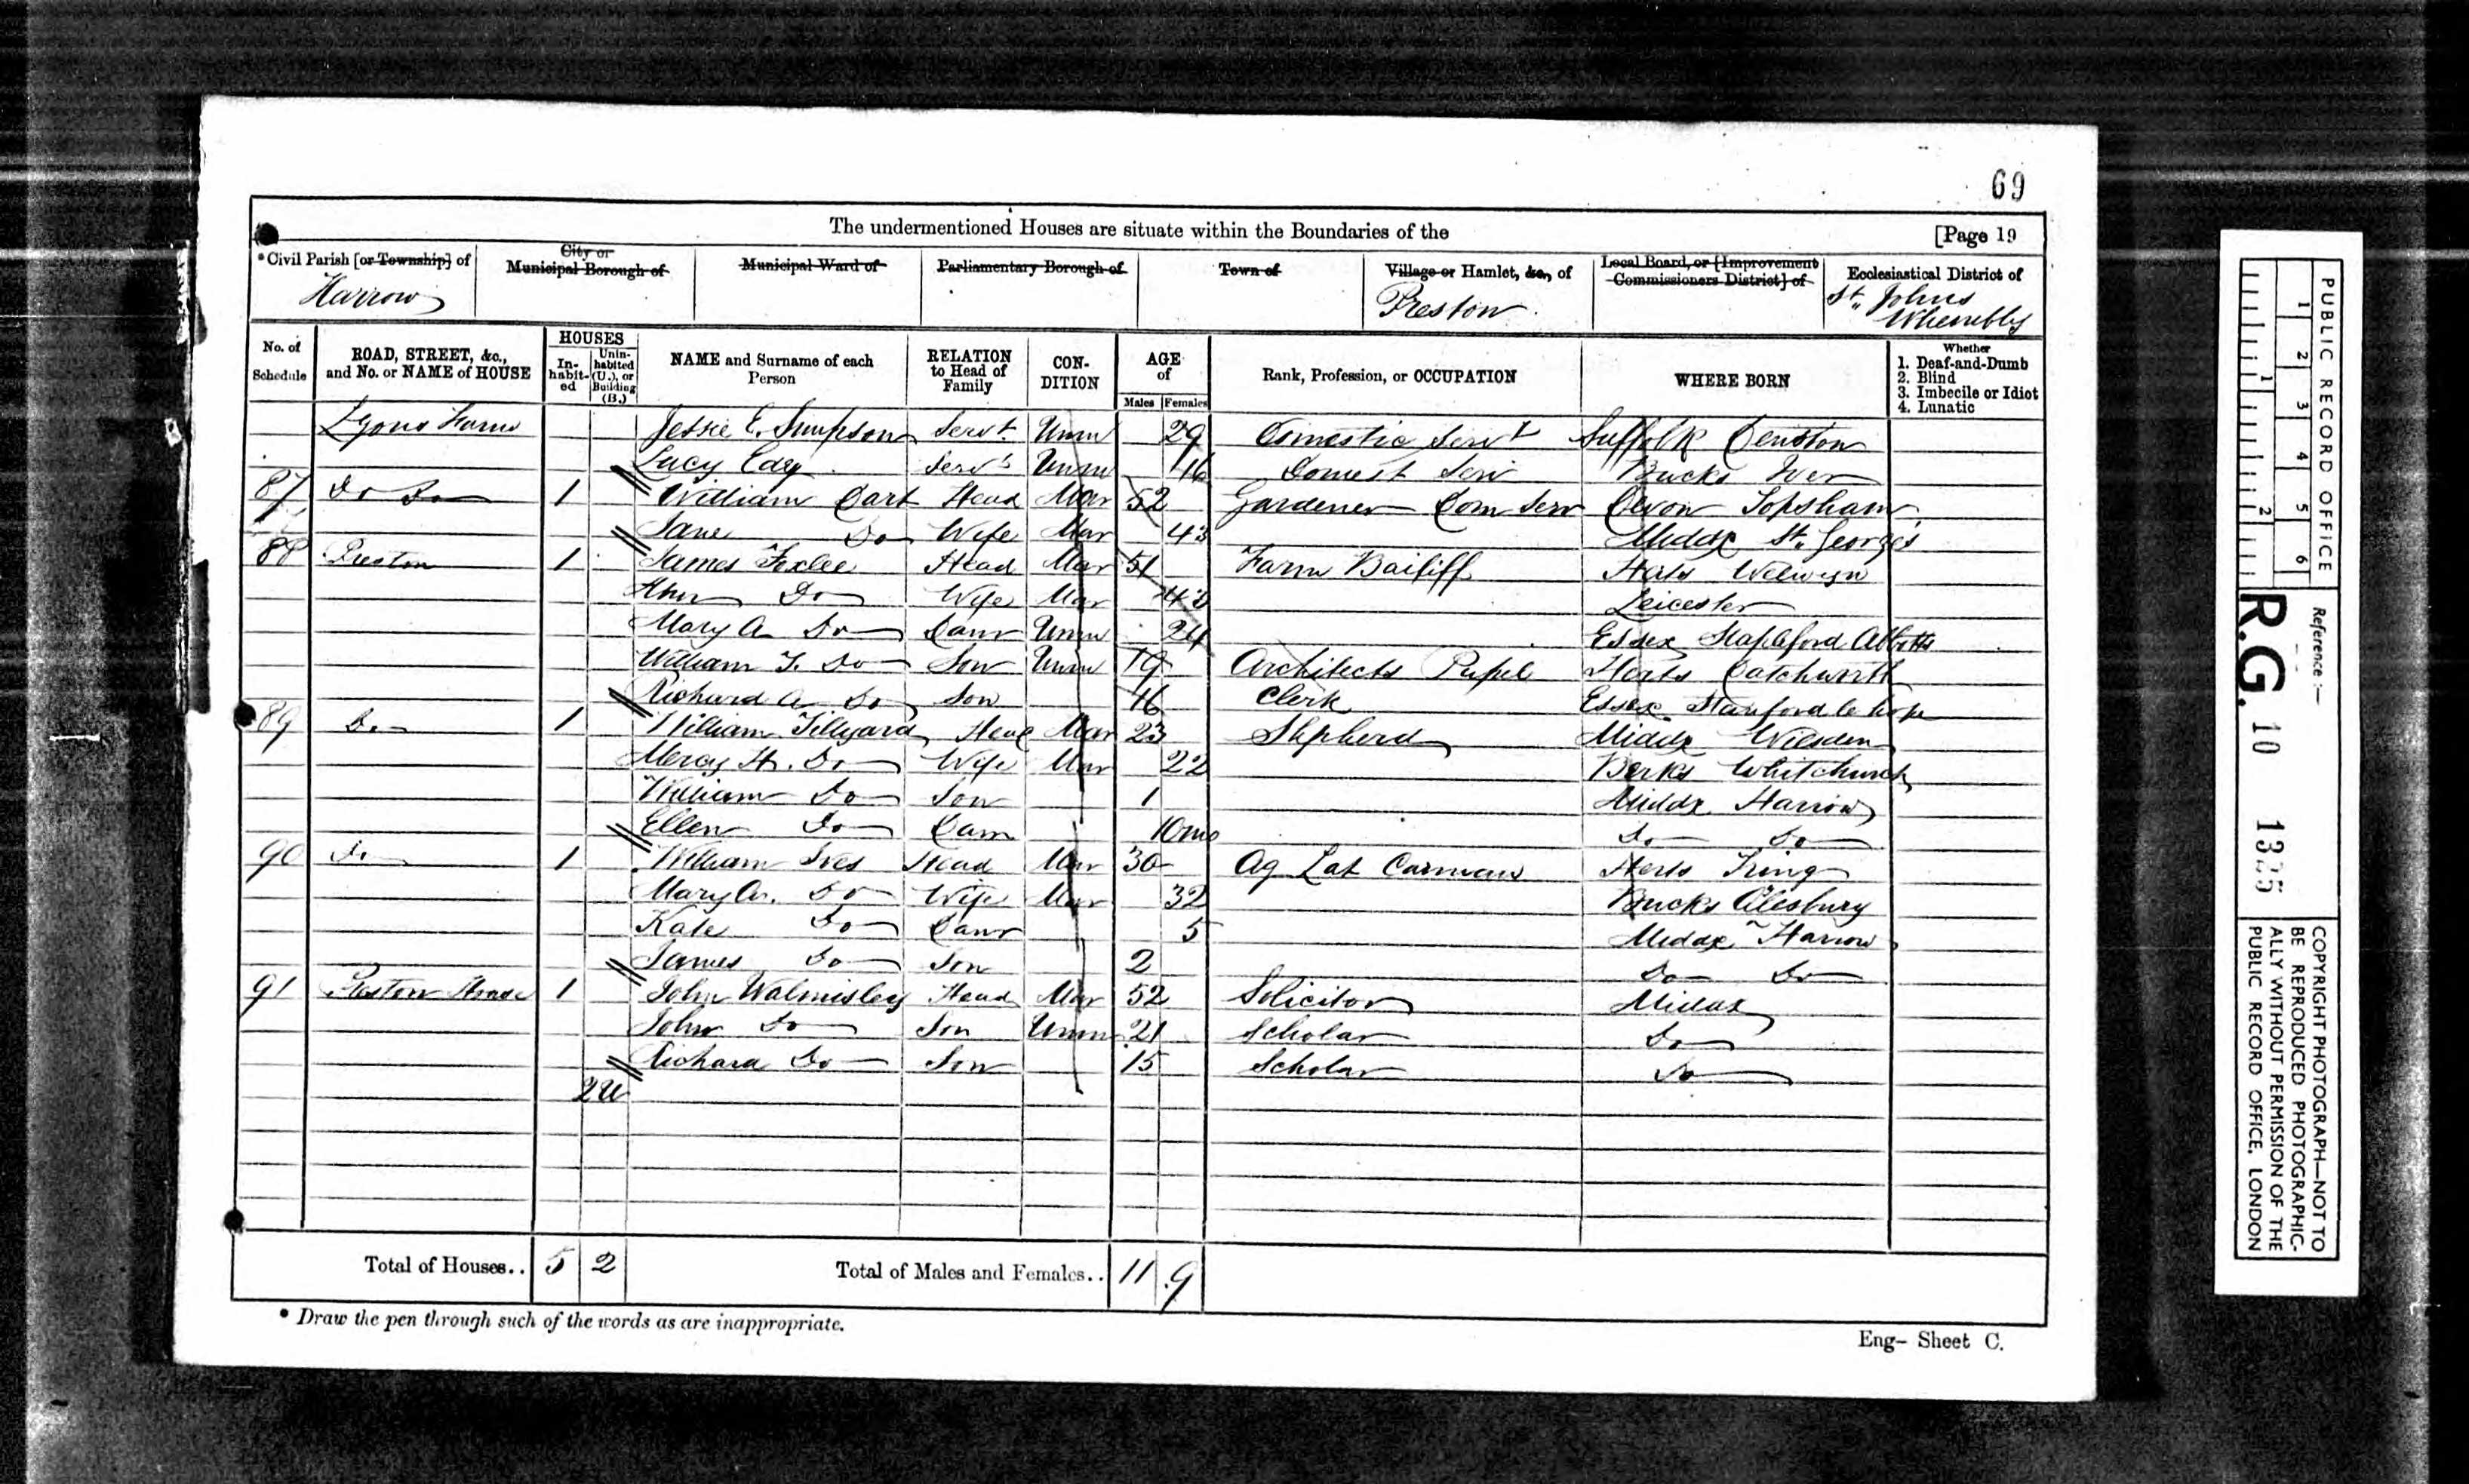 69
The undermentioned Houses are situate within the Boundaries of the [Page 19
*Civil Parish [or Township] of Harrow
City or Municipal Borough of
Municipal Ward of
Parliamentary Borough of
Town of
Village or Hamlet, &c., of Preston
Local Board, or [Improvement Commissioners District] of
Ecclesiastical District of St. Johns Whembly
No. of Schedule
ROAD, STREET, &c., and No. or NAME of HOUSE
HOUSES
In-habit-ed
Unin-habited (U.), or Building (B.)
NAME and Surname of each Person
RELATION to Head of Family
CON-DITION
AGE of
Males Females
Rank, Profession, or OCCUPATION
WHERE BORN
Whether
1. Deaf-and-Dumb
2. Blind
3. Imbecile or Idiot
4. Lunatic
Lyons Farm Jessie E. Simpson Servt. Unm 29 Domestic Servt Suffolk Denston
Lucy Servt Unm 16 Domest Serv Bucks Iver
87 Do Do 1 William Dart Head Mar 52 Gardener Dom Serv Devon Topsham
Jane Do Wife Mar 43 Middx St. Georges
88 Preston 1 James Head Mar 51 Farm Bailiff Herts Welwyn
Ann Do Wife Mar Leicester
Mary A Do Daur Unm 24 Essex Stapleford Abbotts
William F. Do Son Unm 19 Architects Pupil Herts Datchworth
Richard A Do Son 16 Clerk Essex Stanford le hope
89 Do 1 William Tillyard Head Mar 23 Shpherd Middx Wilsden
Mercy H. Do Wife Mar 22 Berks Whitchurch
William Do Son 1 Middx Harrow
Ellen Do Daur 10mo Do Do
90 Do 1 William Ives Head Mar 30 Ag Lab Carman Herts Tring
Mary A. Do Wife Mar 32 Bucks Alesbury
Kate Do Daur 5 Middx Harrow
James Do Son 2 Do Do
91 Preston House 1 John Walmisley Head Mar 52 Solicitor Middx
John Do Son Unm 21 Scholar Do
Richard Do Son 15 Scholar Do
2U
Total of Houses.. 5 2 Total of Males and Females.. 11 9
* Draw the pen through such of the words as are inappropriate.
Eng- Sheet C.
PUBLIC RECORD OFFICE
1 2 3 4 5 6
1 2
Reference :—
R.G. 10
COPYRIGHT PHOTOGRAPH—NOT TO
BE REPRODUCED PHOTOGRAPHIC-
ALLY WITHOUT PERMISSION OF THE
PUBLIC RECORD OFFICE, LONDON